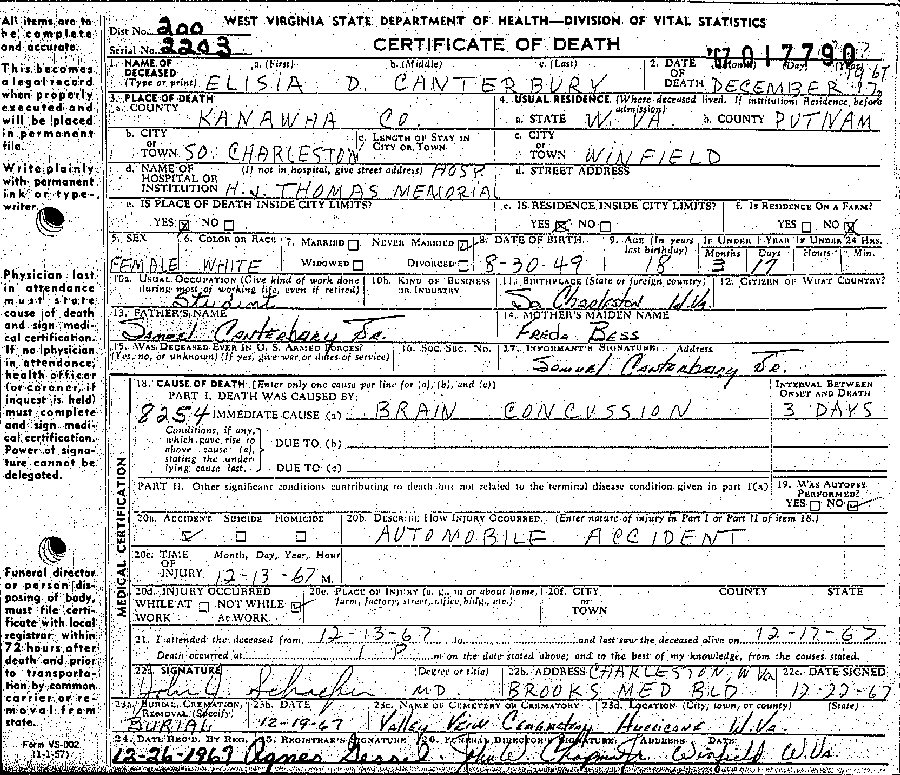 WEST VIRGINIA STATE DEPARTMENT OF HEALTH—DIVISION OF VITAL STATISTICS
Dist No. 200
Serial No. 2203
CERTIFICATE OF DEATH
017790
1. NAME OF DECEASED (Type or print) a. (First) b. (Middle) c. (Last)
ELISIA D. CANTERBURY
2. DATE OF DEATH (Month) (Day) (Year)
DECEMBER 17, 1967
3. PLACE OF DEATH
a. COUNTY KANAWHA CO.
4. USUAL RESIDENCE. (Where deceased lived. If institution: Residence before admission)
a. STATE W. VA. b. COUNTY PUTNAM
b. CITY or TOWN SO. CHARLESTON
c. LENGTH OF STAY IN CITY OR TOWN
c. CITY or TOWN WINFIELD
d. NAME OF HOSPITAL OR INSTITUTION (If not in hospital, give street address) HOSP.
H. J. THOMAS MEMORIAL
d. STREET ADDRESS
e. IS PLACE OF DEATH INSIDE CITY LIMITS?
YES NO
e. IS RESIDENCE INSIDE CITY LIMITS?
YES NO
f. IS RESIDENCE ON A FARM?
YES NO
5. SEX FEMALE
6. COLOR OR RACE WHITE
7. MARRIED NEVER MARRIED
WIDOWED DIVORCED
8. DATE OF BIRTH 8-30-49
9. AGE (In years last birthday) 18
IF UNDER 1 YEAR Months 3 Days 17
IF UNDER 24 HRS. Hours Min.
10a. USUAL OCCUPATION (Give kind of work done during most of working life, even if retired)
Student
10b. KIND OF BUSINESS OR INDUSTRY
11. BIRTHPLACE (State or foreign country)
So Charleston W.Va.
12. CITIZEN OF WHAT COUNTRY?
13. FATHER'S NAME
Samuel Canterbury Sr.
14. MOTHER'S MAIDEN NAME
Freda Bess
15. WAS DECEASED EVER IN U. S. ARMED FORCES?
(Yes, no, or unknown) (If yes, give war or dates of service)
16. SOC. SEC. NO.
17. INFORMANT'S SIGNATURE Address
Samuel Canterbury Sr.
18. CAUSE OF DEATH (Enter only one cause per line for (a), (b), and (c))
INTERVAL BETWEEN ONSET AND DEATH
PART I. DEATH WAS CAUSED BY:
8254 IMMEDIATE CAUSE (a) BRAIN CONCUSSION 3 DAYS
Conditions, if any, which gave rise to above cause (a), stating the underlying cause last.
DUE TO (b)
DUE TO (c)
PART II. Other significant conditions contributing to death but not related to the terminal disease condition given in part I(a)
19. WAS AUTOPSY PERFORMED?
YES NO
20a. ACCIDENT SUICIDE HOMICIDE
20b. DESCRIBE HOW INJURY OCCURRED. (Enter nature of injury in Part I or Part II of item 18.)
AUTOMOBILE ACCIDENT
20c. TIME OF INJURY Month, Day, Year, Hour
12-13-67 M.
20d. INJURY OCCURRED
WHILE AT WORK NOT WHILE AT WORK
20e. PLACE OF INJURY (e. g., in or about home, farm, factory, street, office, bldg., etc.)
20f. CITY or TOWN COUNTY STATE
21. I attended the deceased from 12-13-67 to and last saw the deceased alive on 12-17-67
Death occurred at 1 P m on the date stated above; and to the best of my knowledge, from the causes stated.
22a. SIGNATURE (Degree or title) MD
22b. ADDRESS CHARLESTON, W Va
BROOKS MED BLD
22c. DATE SIGNED
12-22-67
23a. BURIAL, CREMATION, REMOVAL (Specify)
BURIAL
23b. DATE
12-19-67
23c. NAME OF CEMETERY OR CREMATORY
Valley View Cemetery
23d. LOCATION (City, town, or county) (State)
Hurricane W.Va.
24. DATE RECD. BY REG.
12-26-1967
25. REGISTRAR'S SIGNATURE
Agnes
26. FUNERAL DIRECTOR'S SIGNATURE ADDRESS DATE
Winfield W.Va.
MEDICAL CERTIFICATION
All items are to be complete and accurate.
This becomes a legal record when properly executed and will be placed in permanent file.
Write plainly with permanent ink or typewriter.
Physician last in attendance must state cause of death and sign medical certification. If no physician in attendance, health officer (or coroner, if inquest is held) must complete and sign medical certification. Power of signature cannot be delegated.
Funeral director or person disposing of body, must file certificate with local registrar within 72 hours after death and prior to transportation by common carrier or removal from state.
Form VS-002
(1-1-57)